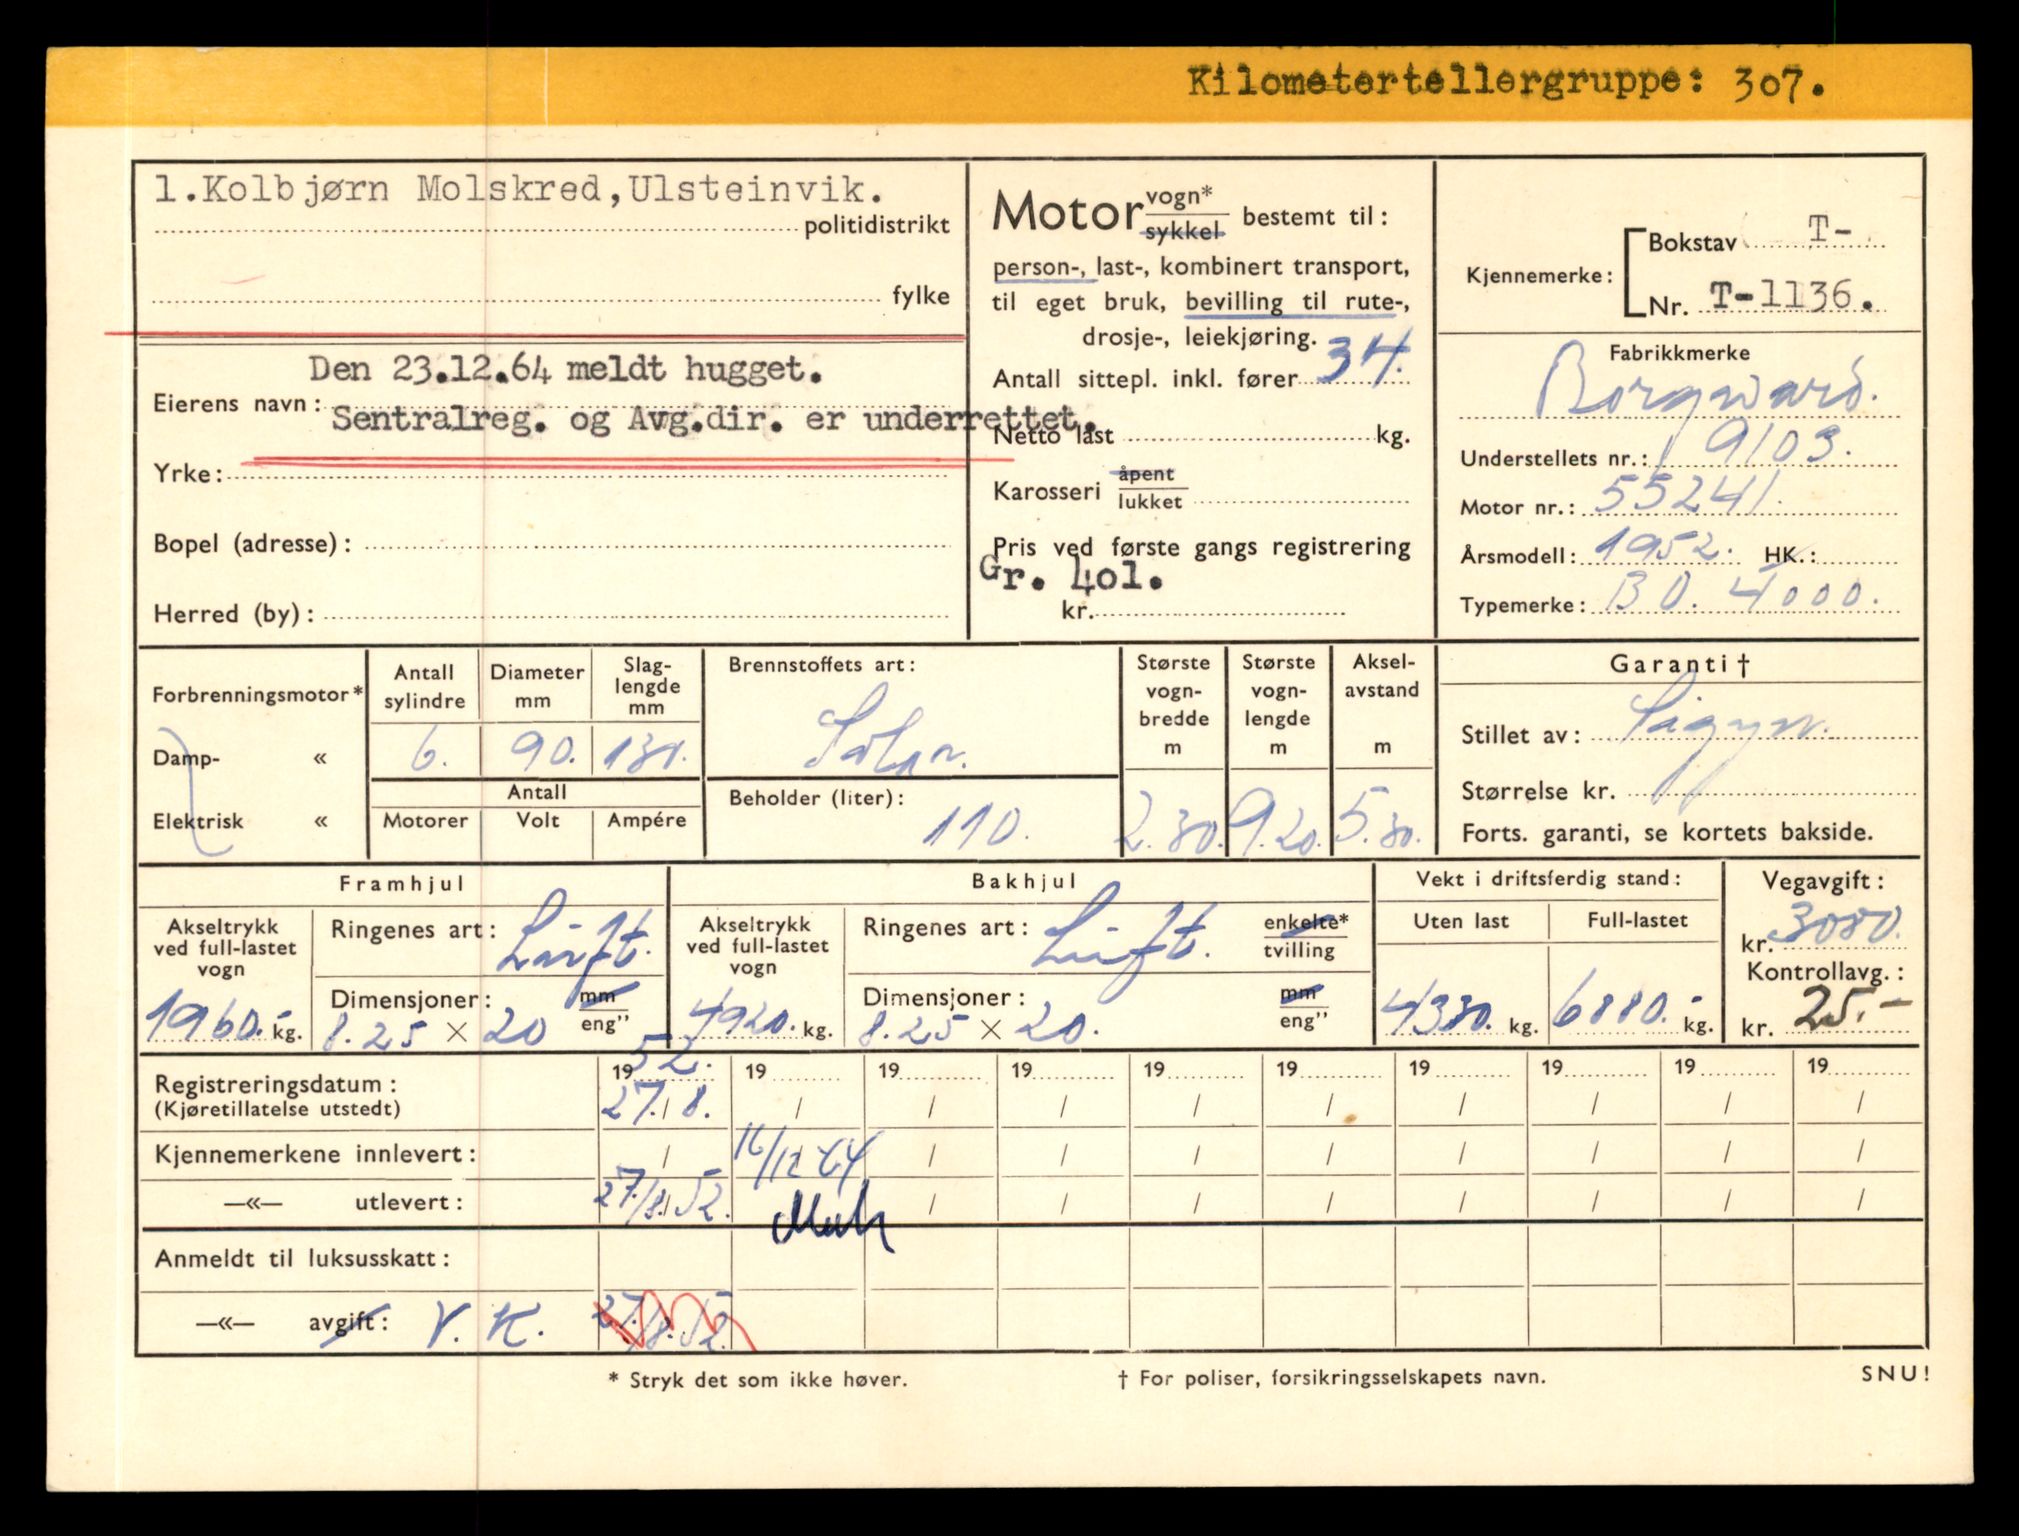 Kilometertellergruppe: 307.
1.Kolbjørn Molskred,Ulsteinvik.
politidistrikt
fylke
Den 23.12.64 meldt hugget.
Eierens navn:
Sentralreg. og Avg.dir. er underrettet.
Yrke:
Bopel (adresse):
Herred (by):
Motor vogn* sykkel bestemt til:
person-, last-, kombinert transport,
til eget bruk, bevilling til rute-,
drosje-, leiekjøring.
Antall sittepl. inkl. fører 34.
Netto last kg.
Karosseri åpent lukket
Pris ved første gangs registrering
Gr. 401.
kr.
Kjennemerke: Bokstav T-
Nr. T-1136.
Fabrikkmerke
Borgward.
Understellets nr.: 9103.
Motor nr.: 55241.
Årsmodell: 1952. HK.:
Typemerke: BO. 4000.
Forbrenningsmotor*
Damp- «
Elektrisk «
Antall sylindre Diameter mm Slag-lengde mm
6. 90. 131.
Antall
Motorer Volt Ampére
Brennstoffets art:
Solar.
Beholder (liter):
110.
Største vogn-bredde m
2.30.
Største vogn-lengde m
9.20.
Aksel-avstand m
5.30.
Garanti†
Stillet av: Sigyn.
Størrelse kr.
Forts. garanti, se kortets bakside.
Framhjul
Akseltrykk ved full-lastet vogn
1960.- kg.
Ringenes art: Luft.
Dimensjoner: mm eng”
8.25 × 20
Bakhjul
Akseltrykk ved full-lastet vogn
4920. kg.
Ringenes art: Luft. enkelte* tvilling
Dimensjoner: mm eng”
8.25 × 20.
Vekt i driftsferdig stand:
Uten last Full-lastet
4330. kg. 6880.- kg.
Vegavgift:
kr. 3080.
Kontrollavg.:
kr. 25.-
Registreringsdatum: 1952. 19 19 19 19 19 19 19 19 19
(Kjøretillatelse utstedt) 27./8. / / / / / / / / /
Kjennemerkene innlevert: / 16/12 64 / / / / / / / /
—«— utlevert: 27./8.52. / / / / / / / /
Anmeldt til luksusskatt:
—«— avgift: V. K. 27./8.52.
* Stryk det som ikke høver.
† For poliser, forsikringsselskapets navn.
SNU!